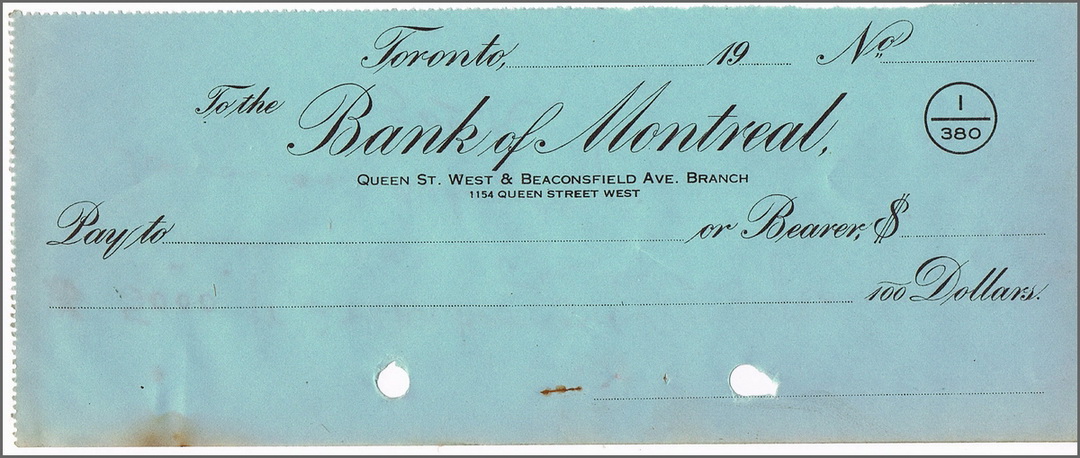 Toronto, 19 No
To the Bank of Montreal,
1
380
QUEEN ST. WEST & BEACONSFIELD AVE. BRANCH
1154 QUEEN STREET WEST
Pay to or Bearer, $
100 Dollars.